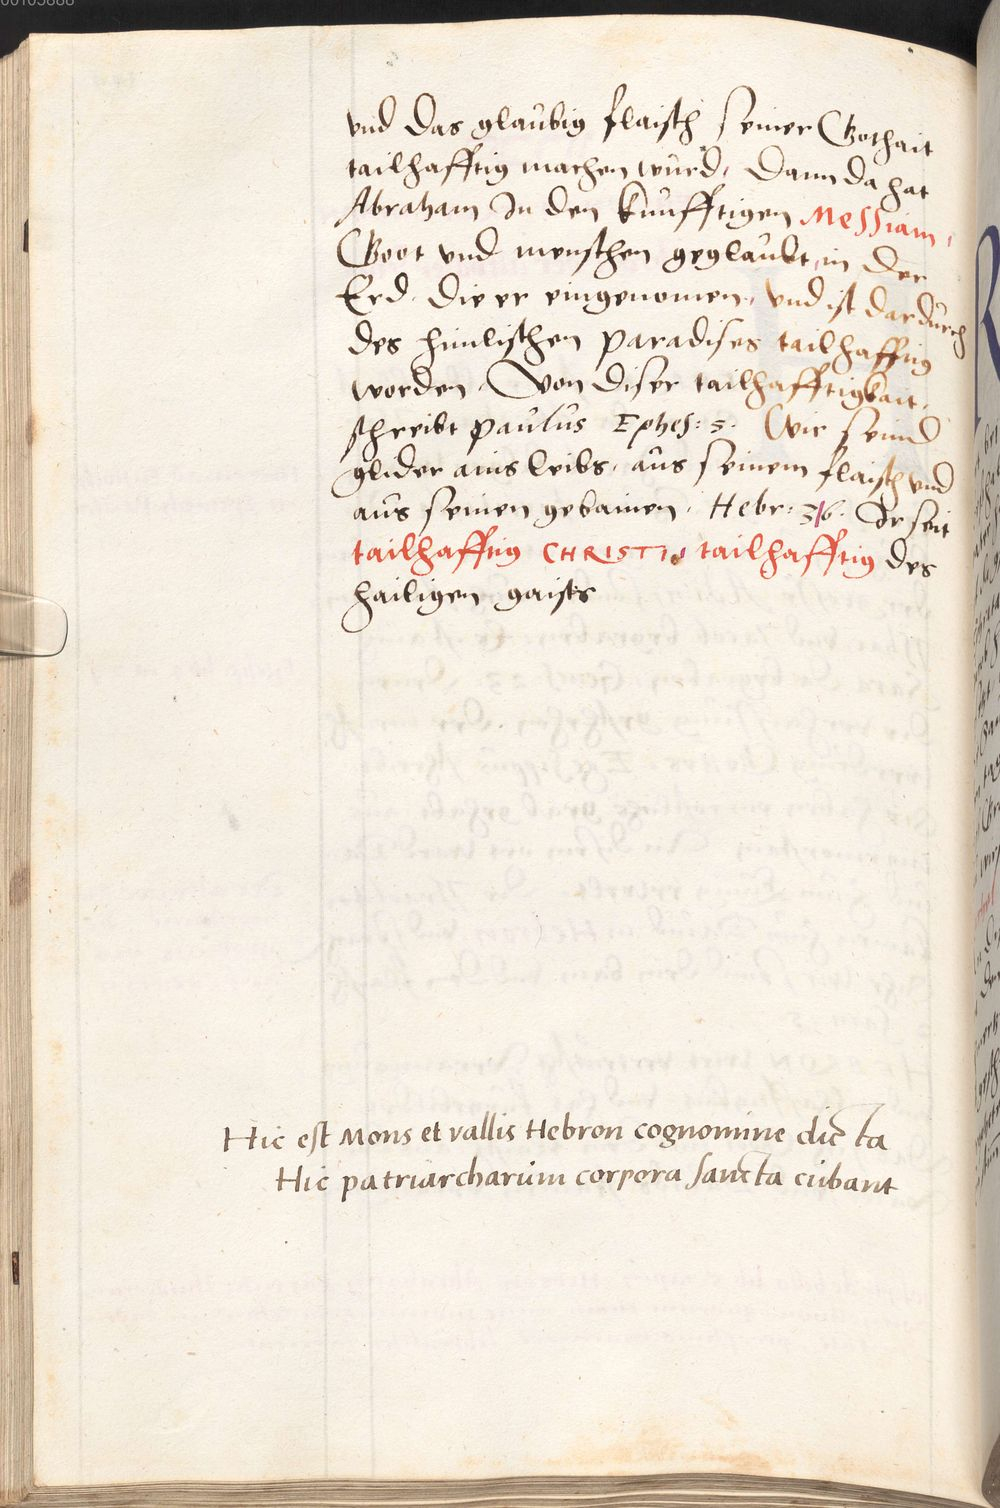 vnd das glaubig flaisch seiner Gothait
tailhafftig machen wurd, Dann da hat
Abraham In den kunfftigen Messiam,
Goot vnd menschen geglaubt, in der
Erd. die er eingenomen, vnd ist dardurch
des himlischen paradises tailhafftig
worden. Von diser tailhafftigkait,
schreibt paulus Ephes: 5. Wir seind
glider ains leibs, aus seinem flaisch vnd
aus seinen gebainen. Hebr: 3/6. Ir seit
tailhafftig CHRISTI, tailhafftig des
hailigen gaists
Hic est Mons et vallis Hebron cognomine dicta
Hic patriarcharum corpora sancta cubant